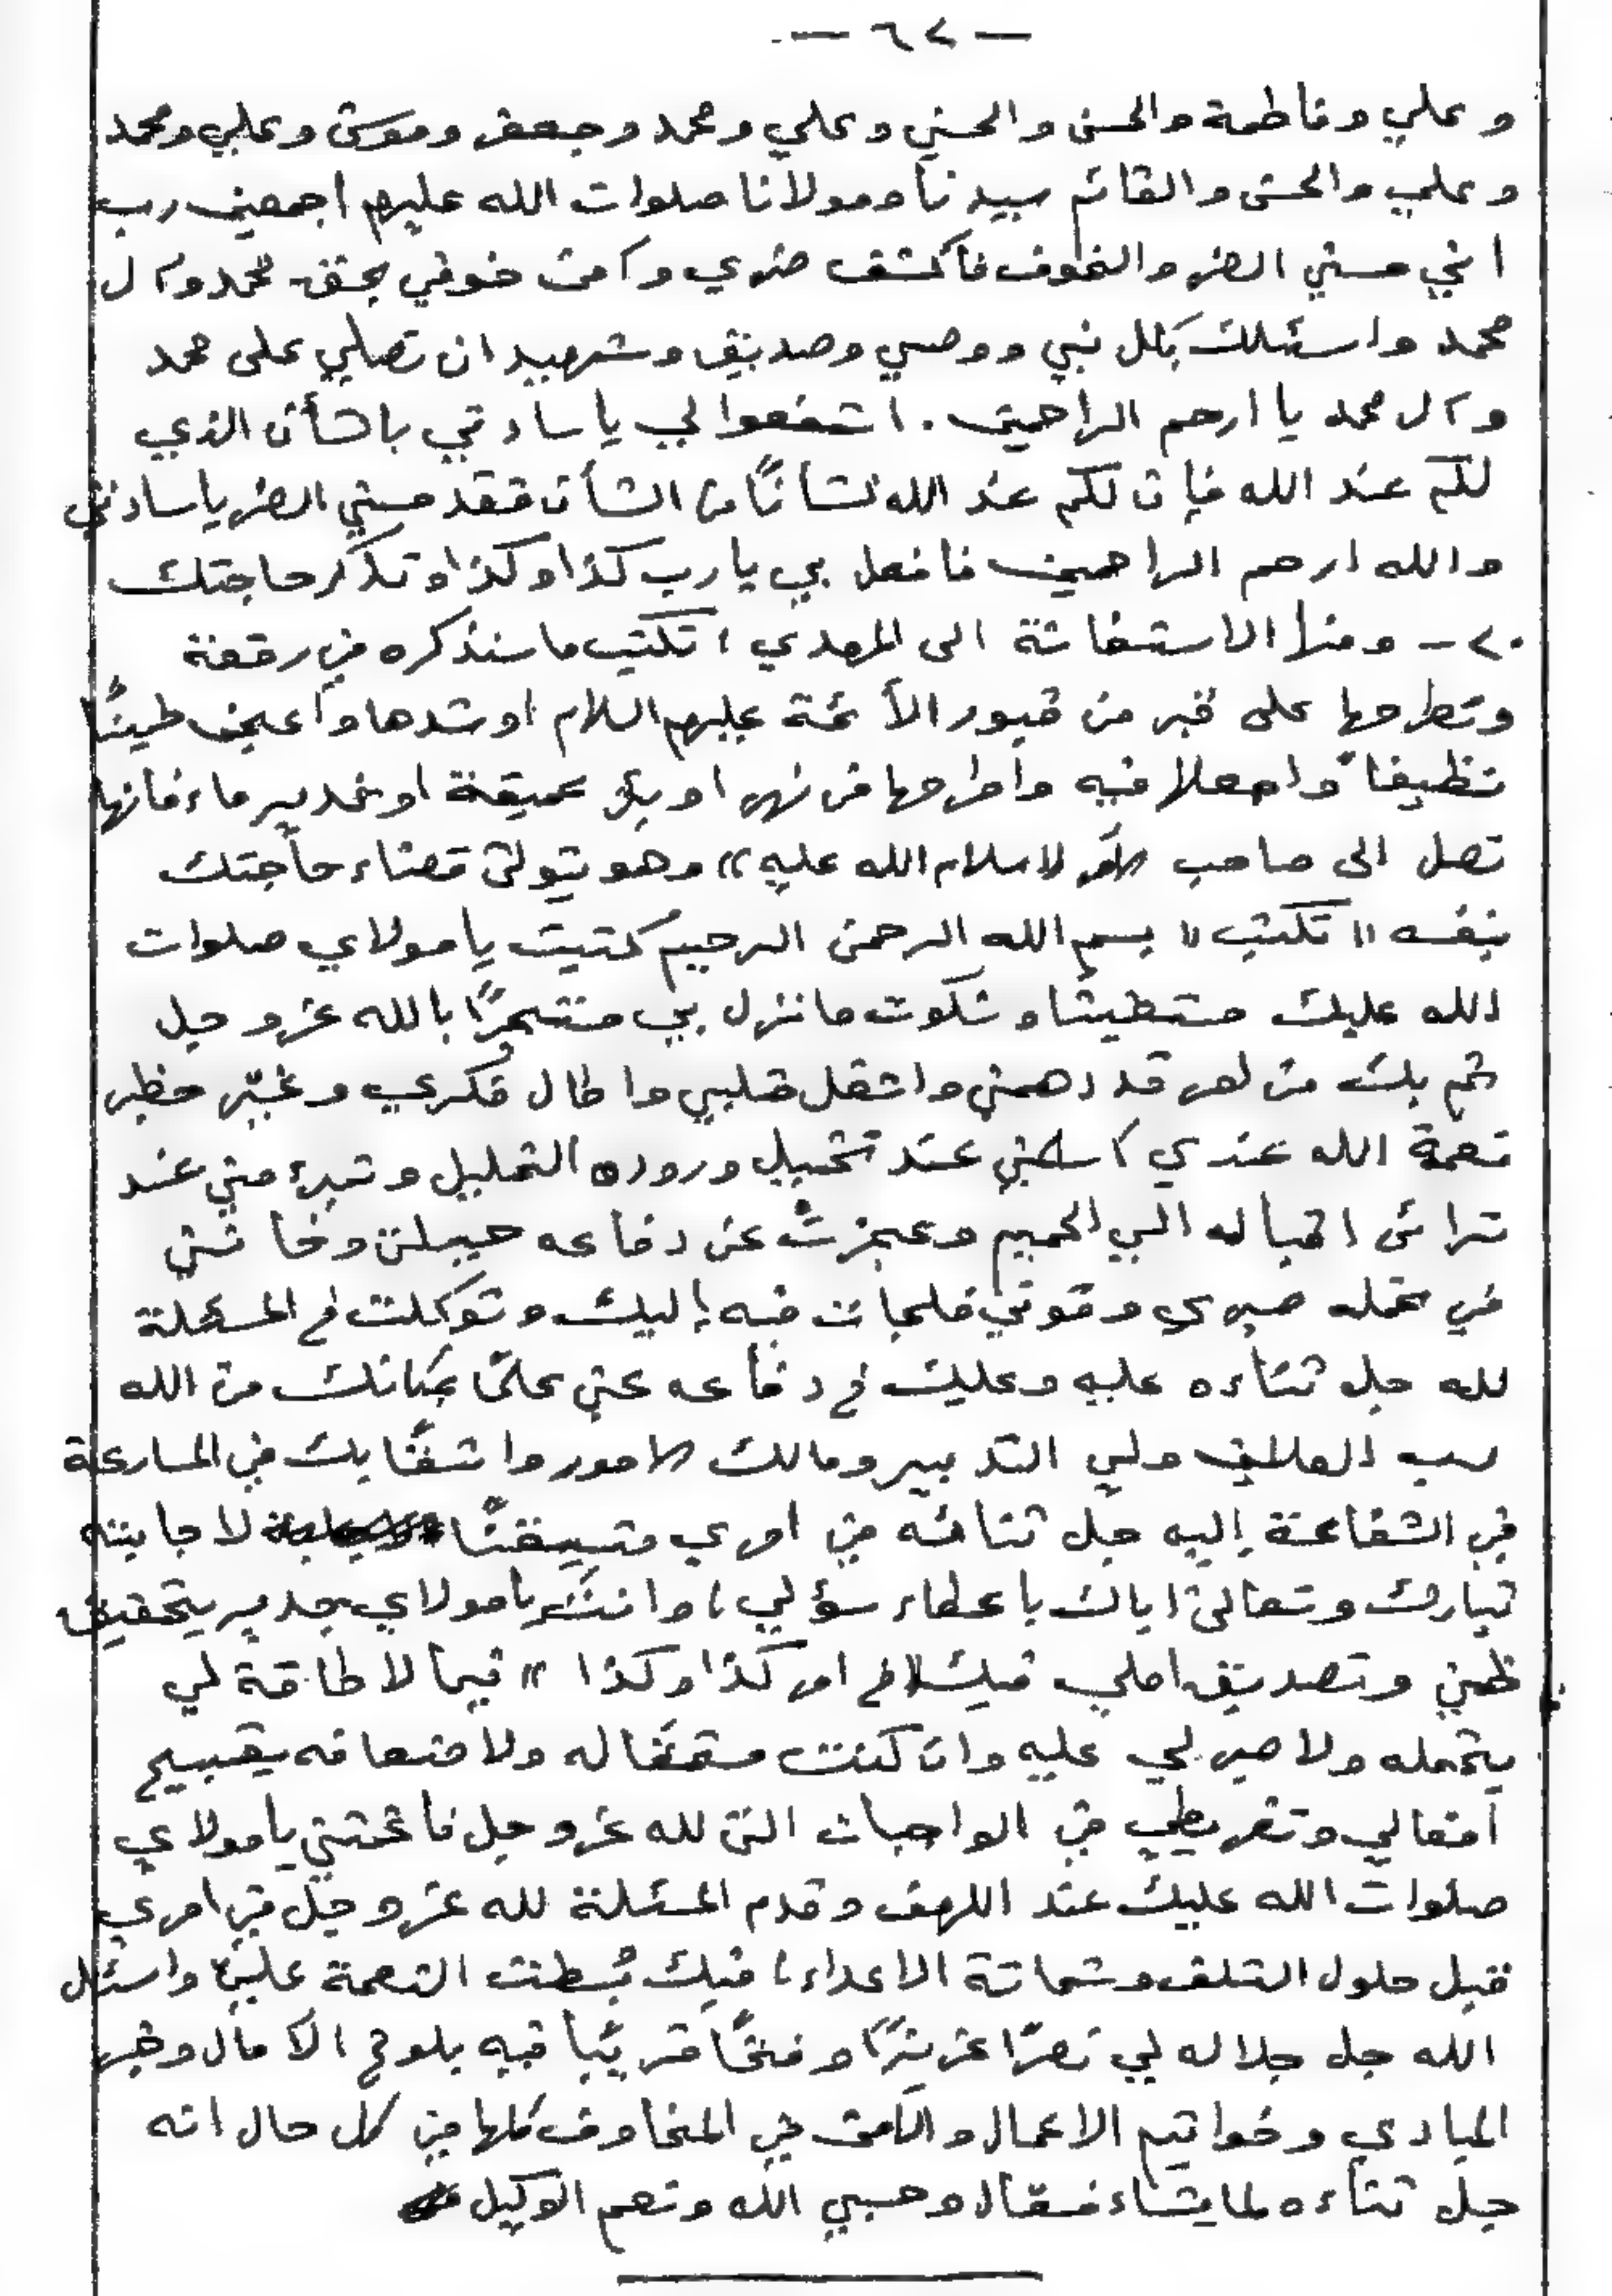 — ٦٧ —
وعلي وفاطمة والحسن والحسين وعلي ومحمد وجعفر وموسى وعلي ومحمد
وعلي والحسن والقائم سيدنا ومولانا صلوات الله عليهم اجمعين رب
اني مسني الضر والخوف فاكشف ضري وآمن خوفي بحق محمد وآل
محمد واسئلك بكل نبي ووصي وصديق وشهيد ان تصلي على محمد
وآل محمد يا ارحم الراحمين . اشفعوا لي يا سادتي بالشأن الذي
لكم عند الله فإن لكم عند الله لشأنًا من الشأن فقد مسني الضر يا سادتي
والله ارحم الراحمين فافعل بي يا رب كذا وكذا وتذكر حاجتك
٢٠ - ومنها الاستغاثة الى المهدي ؛ تكتب ما سنذكره في رقعة
وتطرحها على قبر من قبور الأئمة عليهم السلام او شدها واعجن طينًا
نظيفاً واجعلها فيه واطرحها في نهر او بئر عميقة او غدير ماء فانها
تصل الى صاحب الأمر « سلام الله عليه » وهو يتولى قضاء حاجتك
بنفسه « تكتب » بسم الله الرحمن الرحيم كتبت يا مولاي صلوات
الله عليك مستغيثا وشكوت ما نزل بي مستجيرًا بالله عز وجل
ثم بك من امر قد دهمني واشغل قلبي واطال فكري وغيّر خطير
نعمة الله عندي اسلمني عند تخيل وروده الخليل وتبرء مني عند
ترائى اقباله الي الحميم وعجزت عن دفاعه حيلتي وخانني
في تحمله صبري وقوتي فلجأت فيه إليك وتوكلت في المسئلة
لله جل ثناءه عليه وعليك في دفاعه عني علمًا بمكانك من الله
رب العالمين ولي التدبير ومالك الامور واثقًا بك في المسارعة
في الشفاعة إليه جل ثنائه في امري متيقنًا لاجابته
تبارك وتعالى اياك باعطاء سؤلي ، وانت يا مولاي جدير بتحقيق
ظني وتصديق املي فيك « في امر كذا وكذا » فيما لا طاقة لي
بتحمله ولا صبر لي عليه وان كنت مستحقًا له ولاضعافه بقبيح
أفعالي وتفريطي في الواجبات التي لله عز وجل فاغثني يا مولاي
صلوات الله عليك عند اللهف وقدم المسئلة لله عز وجل في امري
قبل حلول التلف وشماتة الاعداء ؛ فبك بُسطت النعمة عليّ واسئل
الله جل جلاله لي نصرًا عزيزًا وفتحًا قريبًا فيه بلوغ الآمال وخير
المبادي وخواتيم الاعمال والامن في المخاوف كلها في كل حال انه
جل ثناءه لما يشاء فعال وحسبي الله ونعم الوكيل